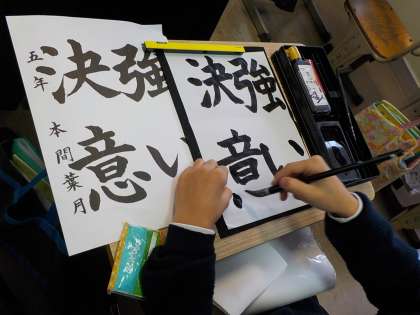 強い
決意
五年 本間葉月
強い
決意